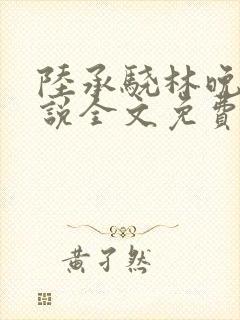 陸承驍林晚
說全文免費
黃子然